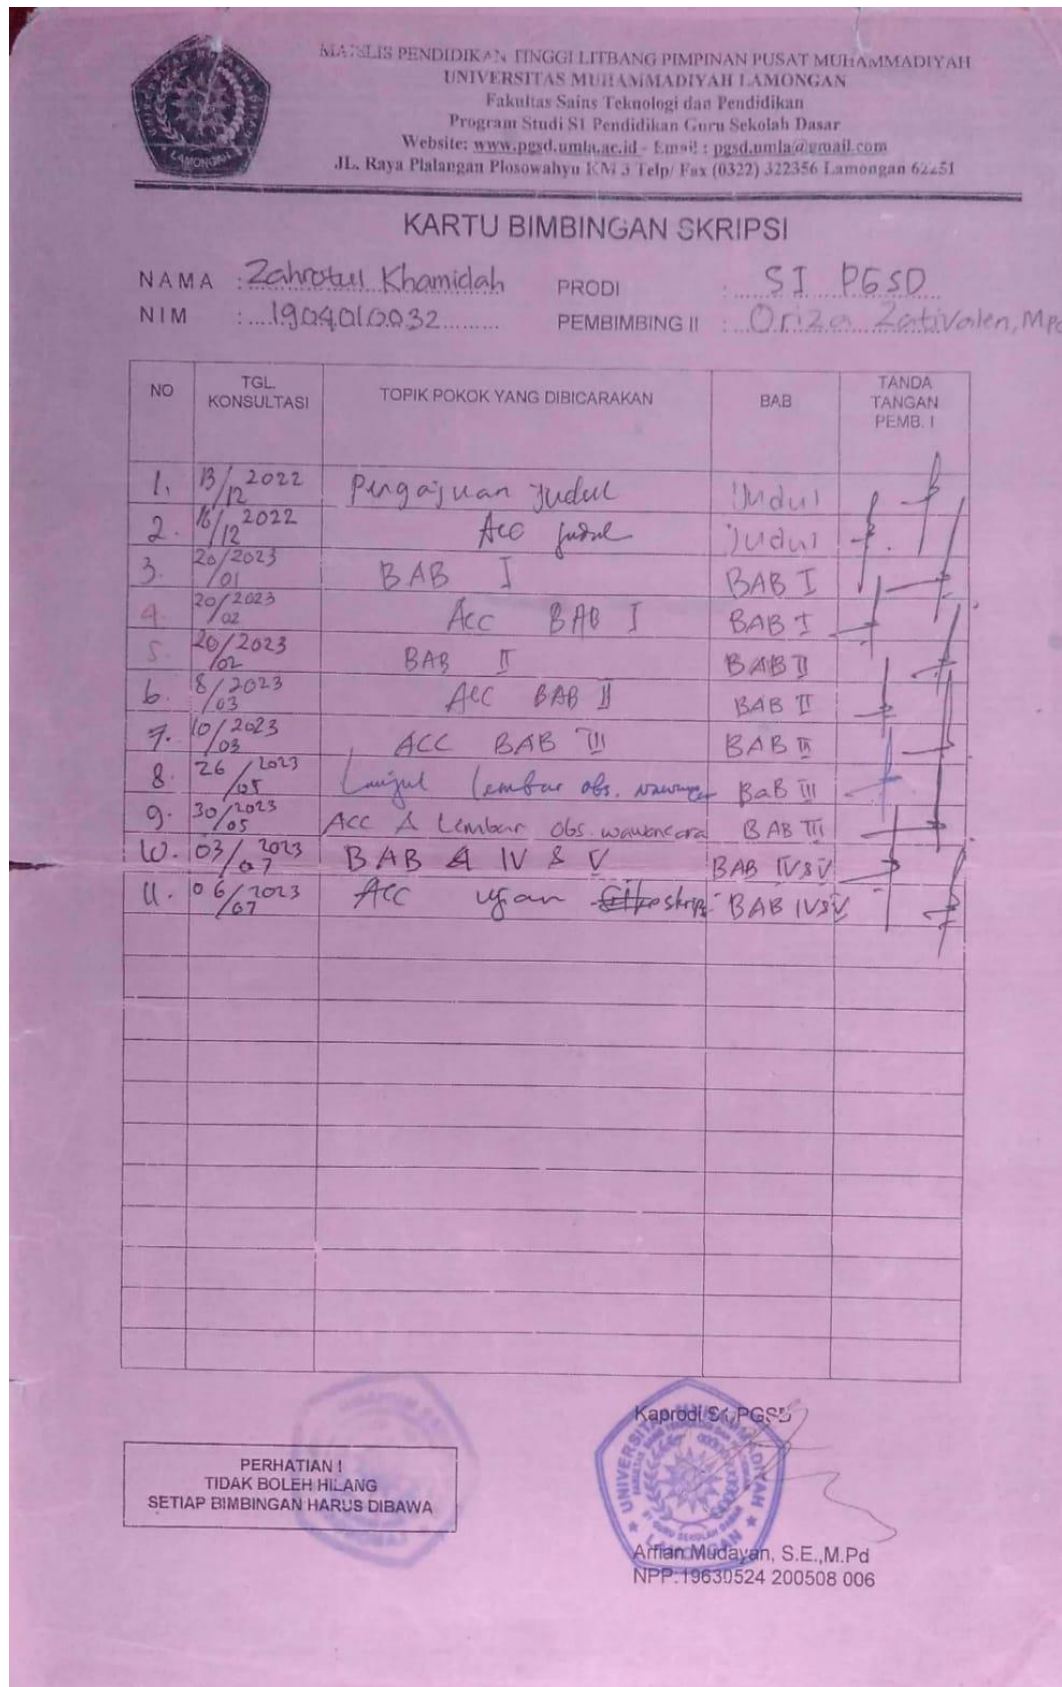 MAJELIS PENDIDIKAN TINGGI LITBANG PIMPINAN PUSAT MUHAMMADIYAH
UNIVERSITAS MUHAMMADIYAH LAMONGAN
Fakultas Sains Teknologi dan Pendidikan
Program Studi S1 Pendidikan Guru Sekolah Dasar
Website: www.pgsd.umla.ac.id - Email : pgsd.umla@gmail.com
JL. Raya Plalangan Plosowahyu KM 3 Telp/ Fax (0322) 322356 Lamongan 62251
KARTU BIMBINGAN SKRIPSI
NAMA : Zahrotul Khamidah PRODI : S1 PGSD
NIM : 1904010032 PEMBIMBING II : Oriza Zativalen, MPd
NO TGL. KONSULTASI TOPIK POKOK YANG DIBICARAKAN BAB TANDA TANGAN PEMB. I
1. 13/12 2022 Pengajuan judul Judul
2. 16/12 2022 Acc judul Judul
3. 20/01 2023 BAB I BAB I
4. 20/02 2023 Acc BAB I BAB I
5. 20/02 2023 BAB II BAB II
6. 8/03 2023 Acc BAB II BAB II
7. 10/03 2023 ACC BAB III BAB III
8. 26/05 2023 Lembar obs. BaB III
9. 30/05 2023 Acc Lembar Obs wawancara BAB III
10. 03/07 2023 BAB IV & V BAB IV & V
11. 06/07 2023 Acc ujian skripsi BAB IV & V
Kaprodi S1 PGSD
PERHATIAN !
TIDAK BOLEH HILANG
SETIAP BIMBINGAN HARUS DIBAWA
UNIVERSITAS MUHAMMADIYAH
LAMONGAN
Arfian Mudayan, S.E.,M.Pd
NPP:19630524 200508 006